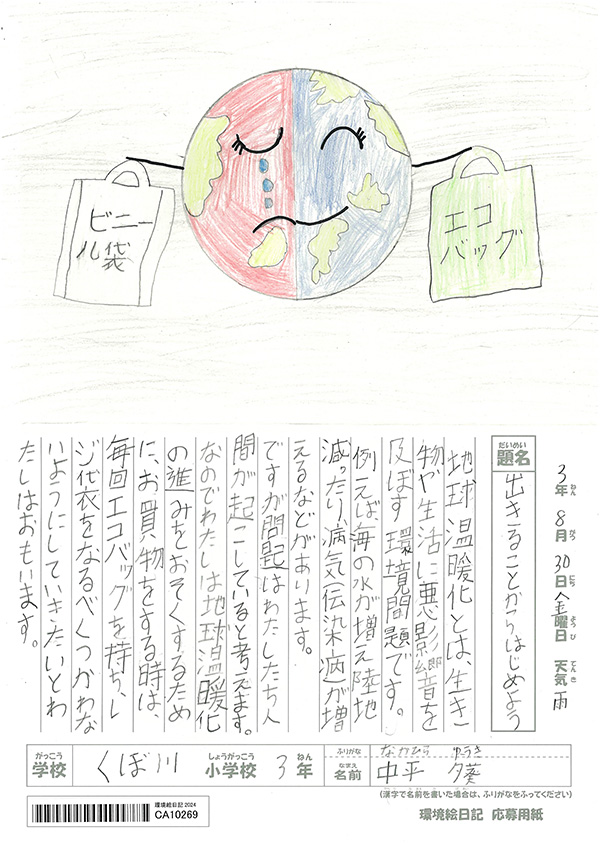 ビニー
ル袋
エコ
バッグ
3年8月30日金曜日 天気 雨
ねん がつ にち ようび てんき
だいめい
題名
出きることからはじめよう
地球温暖化とは、生き
物や生活に悪影響を
及ぼす環境問題です。
例えば海の水が増え陸地
減ったり、病気(伝染病)が増
えるなどがあります。
ですが問題はわたしたち人
間が起こしていると考えます。
なのでわたしは地球温暖化
の進みをおそくするため
に、お買物をする時は、
毎回エコバッグを持ち、レ
ジ袋をなるべくつかわな
いようにしていきたいとわ
たしはおもいます。
がっこう しょうがっこう ねん ふりがな なかひら ゆうき
学校 くぼ川 小学校 3年
なまえ
名前 中平 夕葵
(漢字で名前を書いた場合は、ふりがなをふってください)
環境絵日記 2024
CA10269
環境絵日記 応募用紙